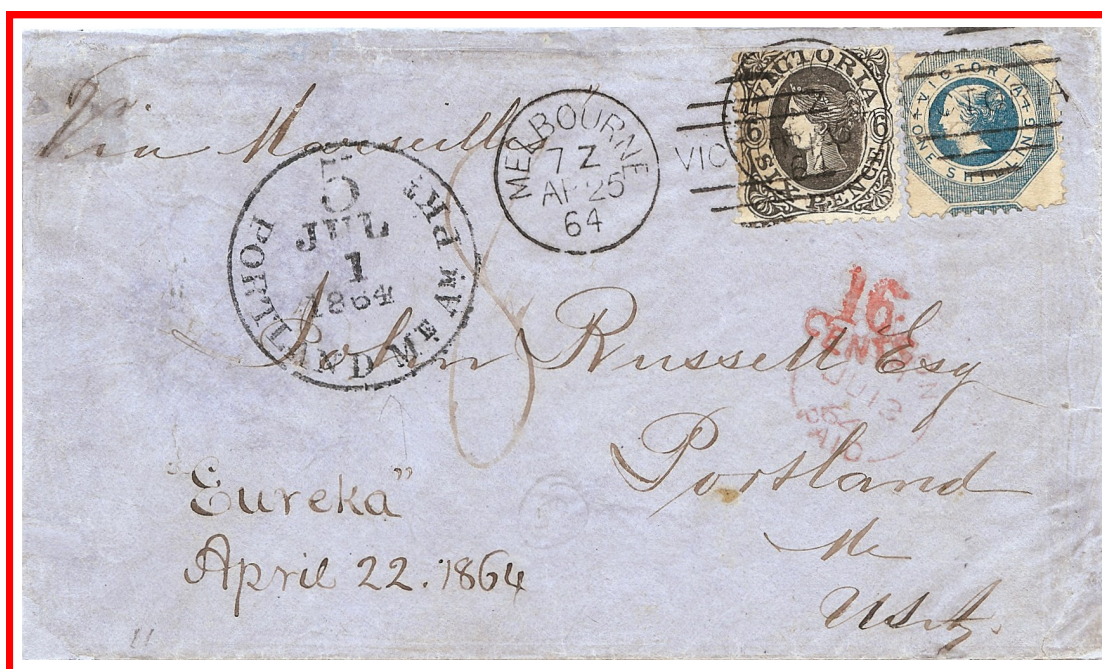 Via Marseilles
MELBOURNE
7 Z
AP 25
64
VIC
VICTORIA
6 6
SIX PENCE
VICTORIA
ONE SHILLING
5
JUL
1
1864
PORTLAND ME AM PKT
8
16
CENTS
JU 13
64
PAID
John Russell Esq
Portland
Me
"Eureka"
April 22. 1864